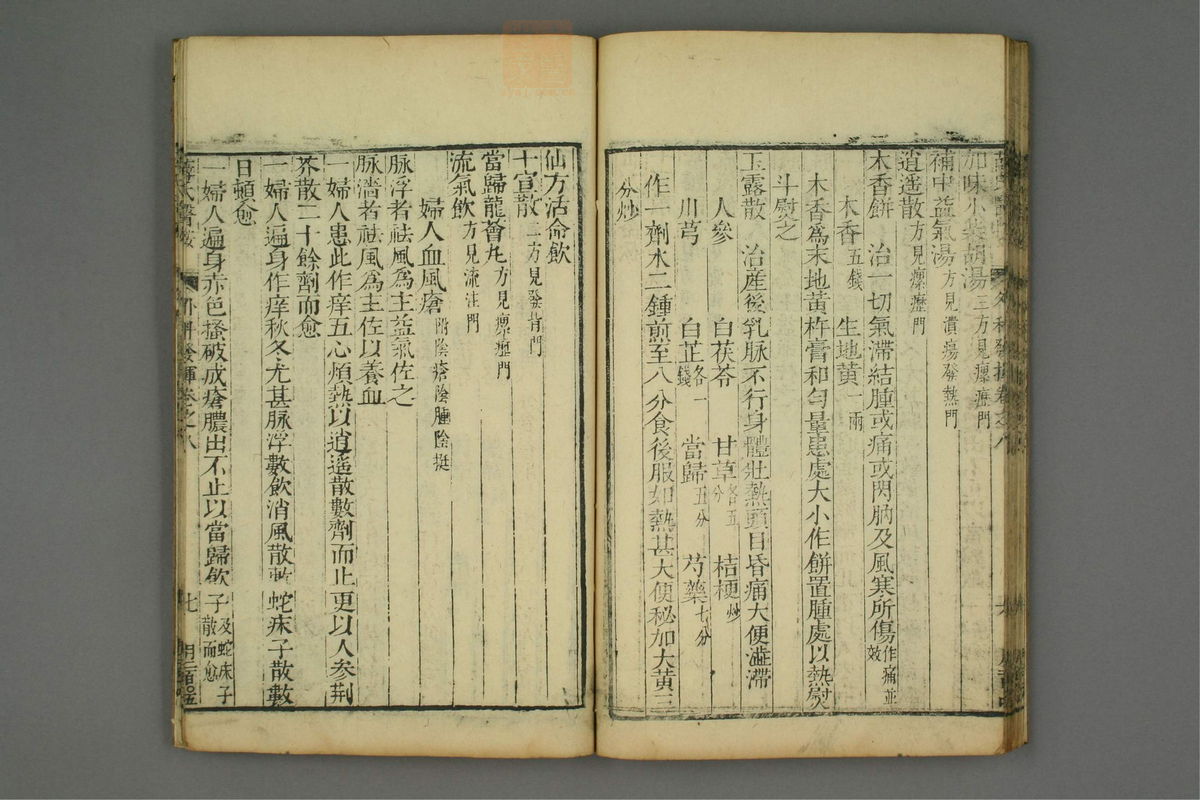 加味小柴胡湯二方見瘰癧門
補中益氣湯方見潰瘍發熱門
逍遥散方見瘰癧門
木香餅　治一切氣滯結腫或痛或閃肭及風寒所傷作痛並效
木香五錢　生地黃一兩
木香爲末地黃杵膏和匀量患處大小作餅置腫處以熱熨
斗熨之
玉露散　治産後乳脉不行身體壯熱頭目昏痛大便澁滯
人參　白茯苓　甘草各五分　桔梗炒
川芎　白芷各一錢　當歸五分　芍藥七分
作一劑水二鍾煎至八分食後服如熱甚大便秘加大黃三
分炒
仙方活命飲
十宣散二方見發背門
當歸龍薈丸方見瘰癧門
流氣飲方見流注門
婦人血風瘡附陰瘡陰腫陰挺
脉浮者祛風爲主益氣佐之
脉濇者祛風爲主佐以養血
一婦人患此作痒五心煩熱以逍遥散數劑而止更以人參荆
芥散二十餘劑而愈
一婦人遍身作痒秋冬尤甚脉浮數飲消風散敷蛇床子散數
日頓愈
一婦人遍身赤色搔破成瘡膿出不止以當歸飲子及蛇床子散而愈
薛氏醫案　外科發揮卷之八　七